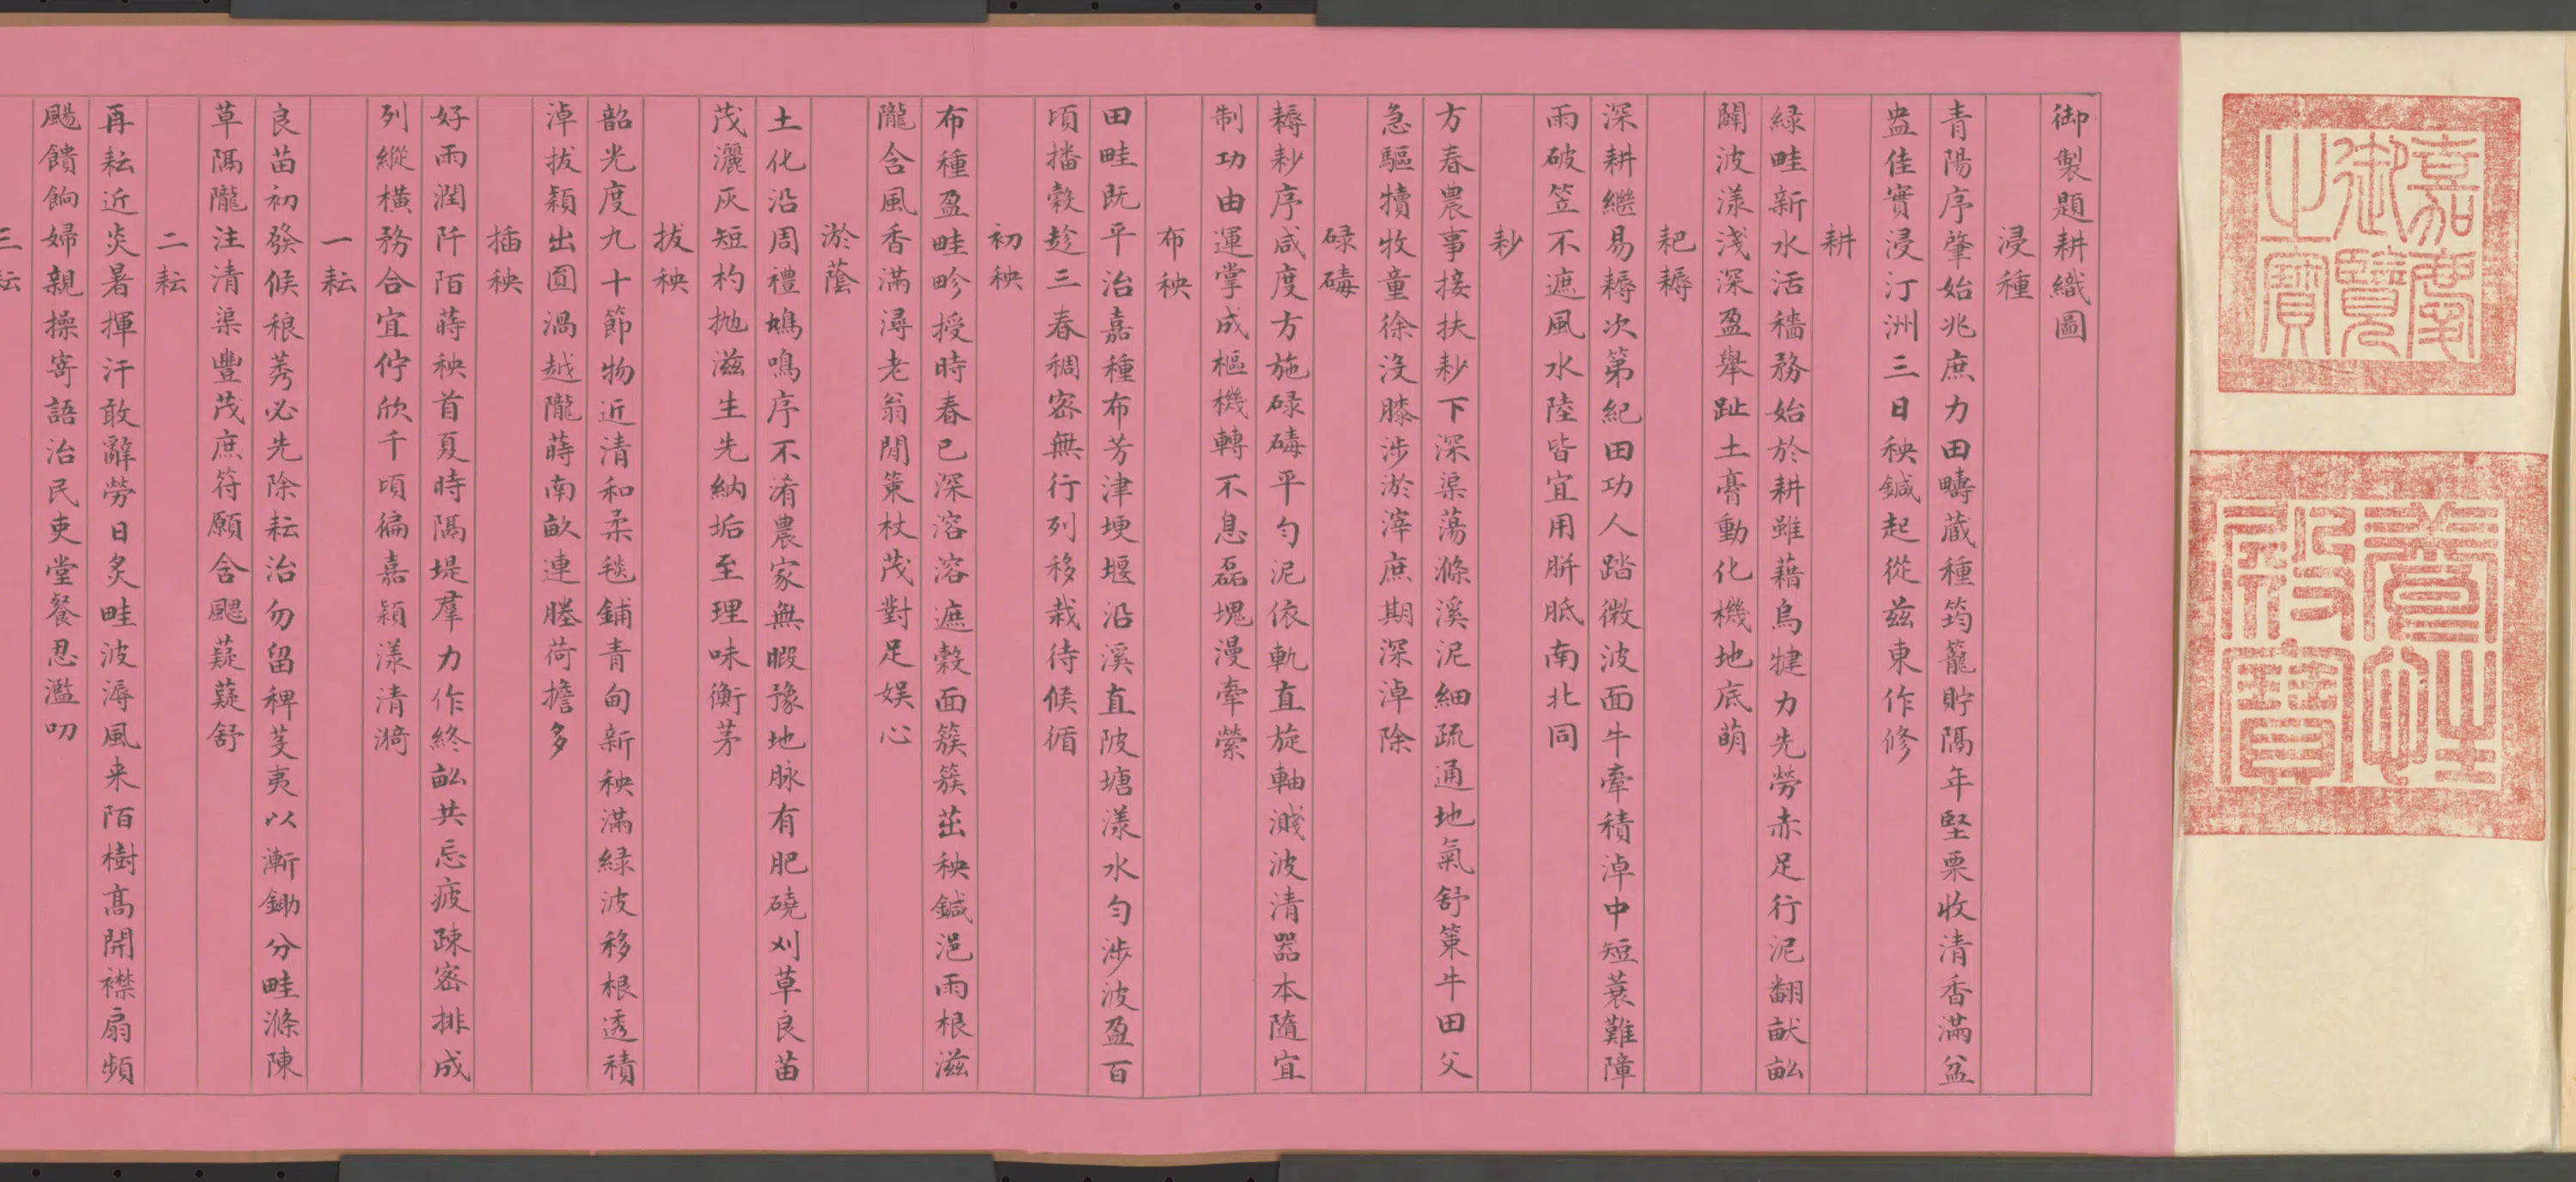 嘉慶御覽之寶
養性殿寶
御製題耕織圖
浸種
青陽序肇始兆庶力田疇蔵種筠籠貯隔年堅栗收清香滿盆
盎佳實浸汀洲三日秧鍼起從茲東作修
耕
緑畦新水活穡務始於耕雖藉烏犍力先勞赤足行泥翻畎畝
闢波漾淺深盈舉趾土膏動化機地底萌
耙耨
深耕繼易耨次第紀田功人踏微波面牛牽積淖中短蓑難障
雨破笠不遮風水陸皆宜用胼胝南北同
耖
方春農事接扶耖下深渠蕩滌溪泥細疏通地氣舒策牛田父
急驅犢牧童徐没膝涉淤滓庶期深淖除
碌碡
耨耖序咸度方施碌碡平勻泥依軌直旋軸濺波清器本隨宜
制功由運掌成樞機轉不息磊塊漫牽縈
布秧
田畦既平治嘉種布芳津埂堰沿溪直陂塘漾水勻涉波盈百
頃播穀趁三春稠密無行列移栽待候循
初秧
布種盈畦畛授時春已深溶溶遮縠面簇簇茁秧鍼浥雨根滋
隴含風香滿潯老翁閒策杖茂對足娱心
淤蔭
土化沿周禮鳩鳴序不淆農家無暇豫地脉有肥磽刈草良苗
茂灑灰短杓抛滋生先納垢至理味衡茅
拔秧
韶光度九十節物近清和柔毯鋪青甸新秧滿緑波移根透積
淖拔穎出圓渦越隴蒔南畝連塍荷擔多
插秧
好雨潤阡陌蒔秧首夏時隔堤羣力作終畝共忘疲疎密排成
列縱横務合宜佇欣千頃徧嘉穎漾清漪
一耘
良苗初發候稂莠必先除耘治勿留稗芟夷以漸鋤分畦滌陳
草隔隴注清渠豐茂庶符願含颸薿薿舒
二耘
再耘近炎暑揮汗敢辭勞日炙畦波溽風来陌樹髙開襟扇頻
颺饋餉婦親操寄語治民吏堂餐忍濫叨
三耘